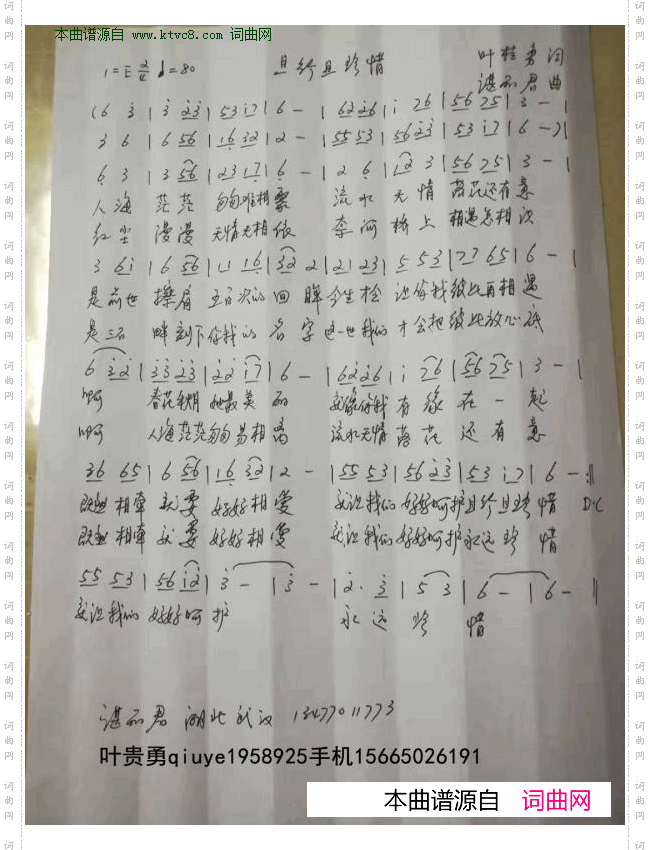 本曲谱源自
www.ktvc8.com 词曲网
1=E 2/4 ♩=80 且行且珍惜 叶桂勇词
谌丽君曲
(6 3 | 3 23 | 53 17 | 6 - | 62 26 | 1 76 | 56 75 | 3 - |
3 6 | 6 56 | 16 32 | 2 - | 55 53 | 56 23 | 53 17 | 6 -) |
6 3 | 3 56 | 23 17 | 6 - | 2 6 | 12 3 | 56 75 | 3 - |
人海 茫茫 匆匆难相聚 流水 无情 落花还有意
红尘 漫漫 无情无相依 奈何 桥上 相遇怎相
3 61 | 6 56 | 11 16 | 32 2 | 21 23 | 5 53 | 77 65 | 6 - |
是前世 擦肩 五百次的 回 眸 今生 让你我彼此再相遇
是三石 畔刻下你我的 名 字 这一世我们 才会把彼此放心底
6 32 | 33 23 | 22 17 | 6 - | 62 26 | 1 76 | 56 75 | 3 - |
啊 春花秋月 她最美 丽 就像你我 有 缘 在 一 起
啊 人海茫茫匆匆易相离 流水无情 落 花 还 有 意
36 65 | 6 56 | 16 32 | 2 - | 55 53 | 56 23 | 53 17 | 6 - :||
既然 相牵 就 要 好好 相爱 就让我们 好好呵护且行且珍 惜 D·C
既然 相牵 就 要 好好 相爱 就让我们 好好呵护永远 珍 惜
55 53 | 56 12 | 3 - | 3 - | 2· 3 | 5 3 | 6 - | 6 - ||
就让我们 好好呵 护 永 远 珍 惜
谌丽君 湖北武汉 13477011773
叶贵勇qiuye1958925手机15665026191
本曲谱源自 词曲网
词曲网